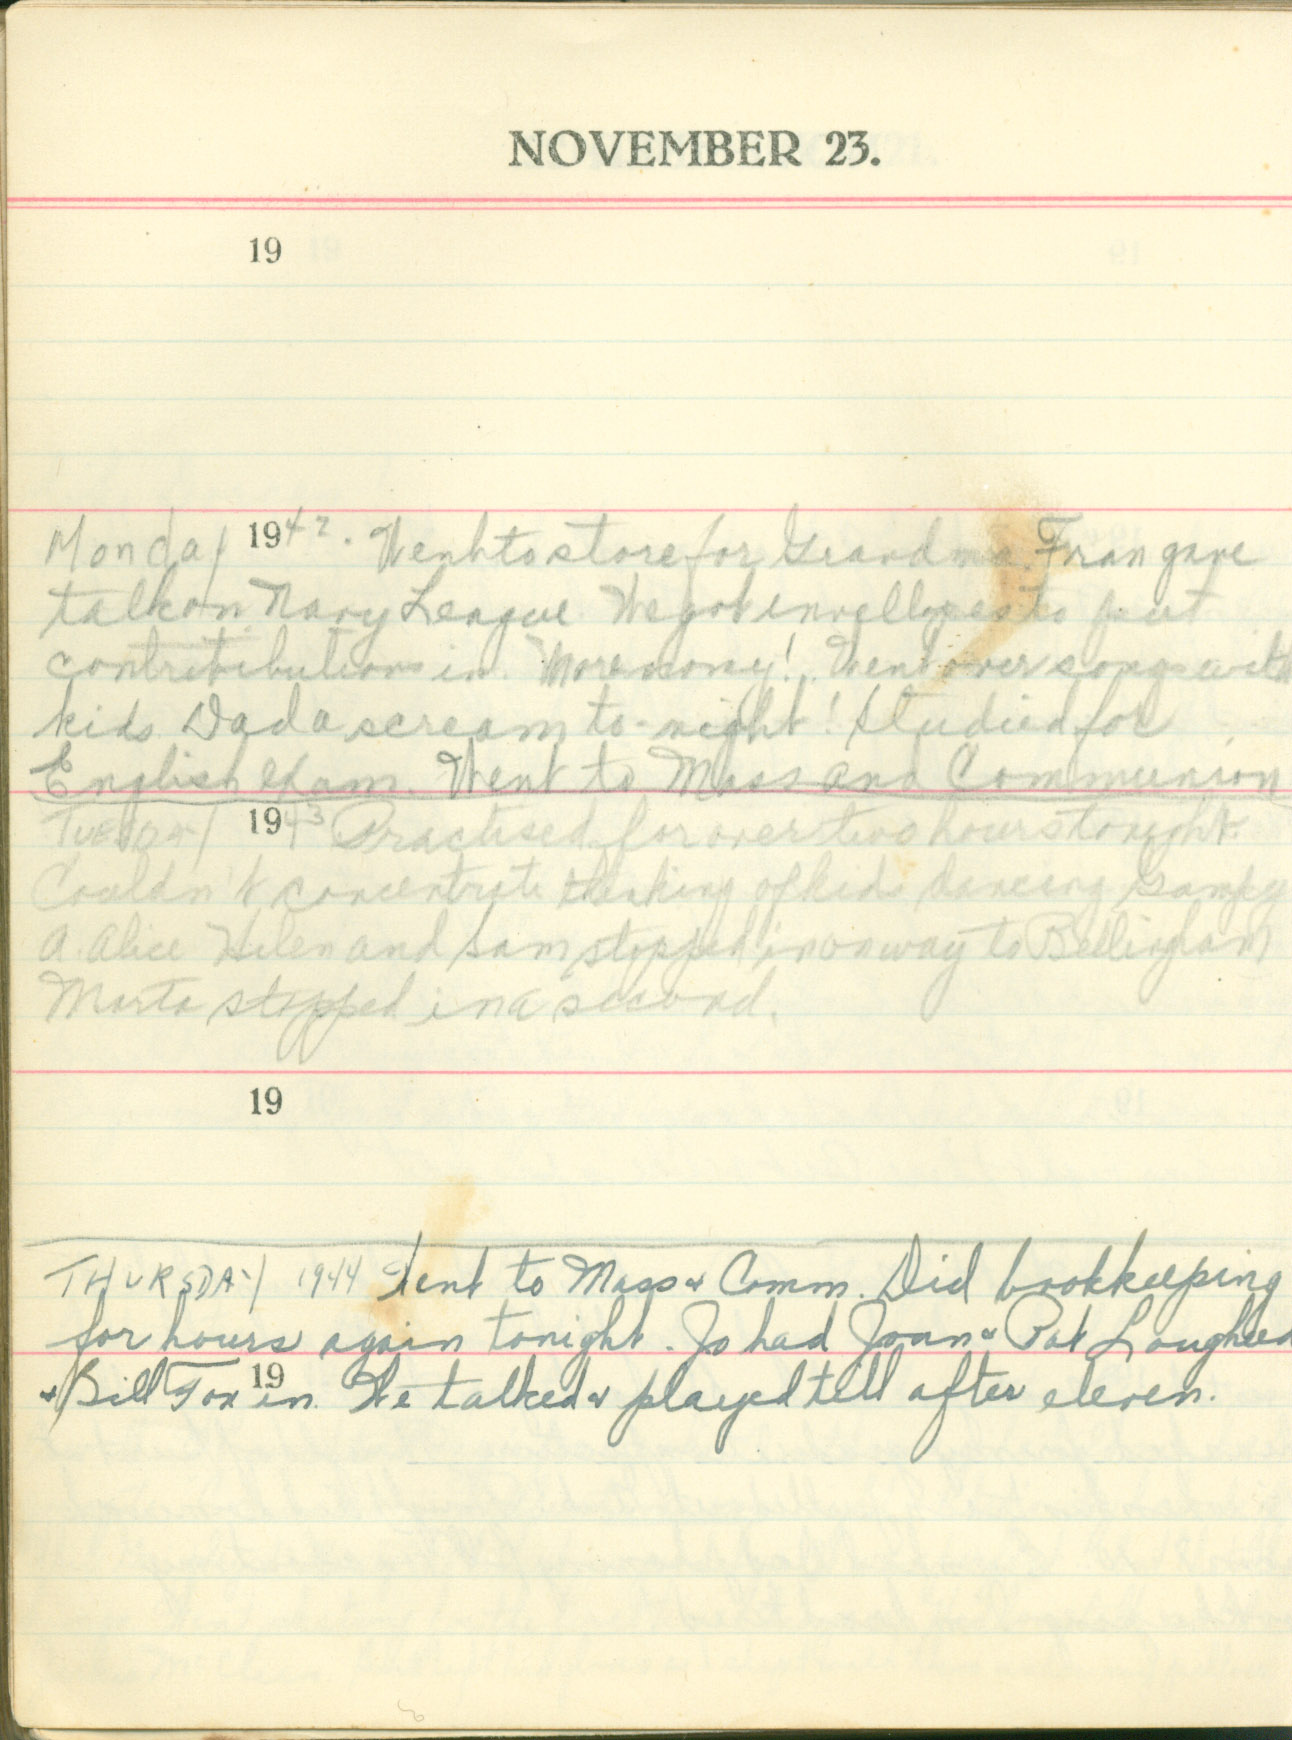 NOVEMBER 23.
19
Monday 1942. Went to store for Grandma. Fran gave
talk on Navy League. We got envellopes to put
contritibutions in. More money! Went over songs with
kids. Dad a scream to-night! Studied for
English exam. Went to Mass and Communion
Tuesday 1943 Practised for over two hours tonight.
Couldn't concentrate thinking of kids dancing. Gampy
A. Alice Helen and Sam stopped in on way to Bellingham
Marta stopped in a second.
19
THURSDAY 1944 Went to Mass & Comm. Did bookkeeping
for hours again tonight. Jo had Joan & Pat Lougheed
& Bill Fox in. We talked & played till after eleven.
19